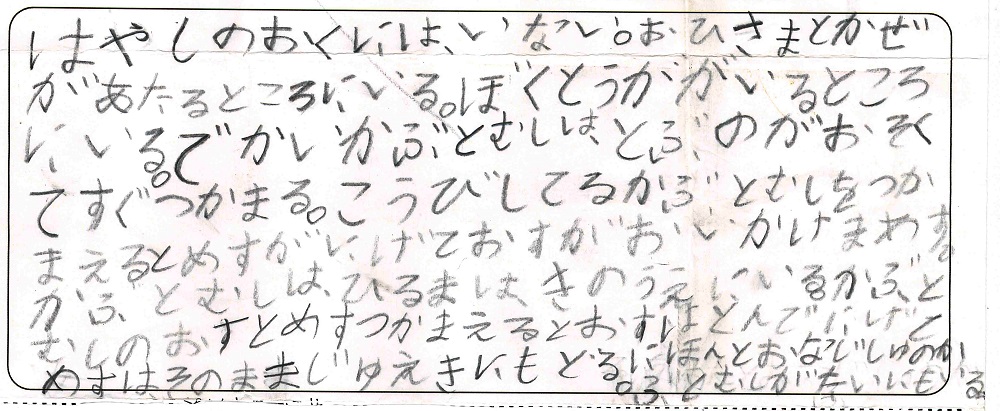 はやしのおくには、いない。おひさまとかぜ
があたるところにいる。ぼくとうががいるところ
にいる。でかいかぶとむしは、とぶのがおそく
てすぐつかまる。こうびしてるかぶとむしをつか
まえるとめすがにげておすがおいかけまわす。
かぶとむしは、ひるまは、きのうえにいるかぶと
むしのおすとめすつかまえるとおすはとんでにげて
めすはそのままじゅえきにもどる。にほんとおなじしゅのか
ぶとむしがたいにもいる